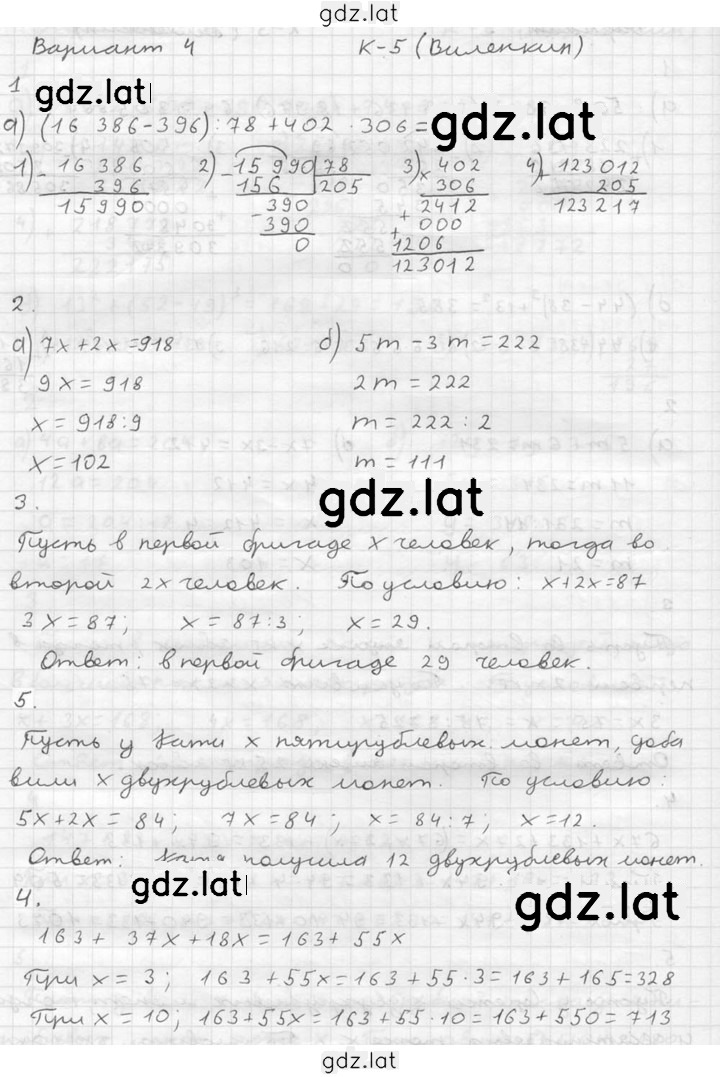 gdz.lat
Вариант 4 К-5 (Виленкин)
1
gdz.lat
а) (16 386-396):78+402 · 306= gdz.lat
1) 16 386 2) 15 990 78 3) 402 4) 123 012
- 396 - 156 205 × 306 + 205
15990 390 2412 123217
- 390 + 000
0 + 1206
123012
2.
а) 7х+2х=918 б) 5m-3m=222
9х=918 2m=222
х=918:9 m=222:2
х=102 m=111
gdz.lat
3.
Пусть в первой бригаде х человек, тогда во
второй 2х человек. По условию: х+2х=87
3х=87; х=87:3; х=29.
Ответ: в первой бригаде 29 человек.
5.
Пусть у Кати х пятирублевых монет, доба
вили х двухрублевых монет. По условию:
5х+2х=84; 7х=84; х=84:7; х=12.
Ответ: Катя получила 12 двухрублевых монет.
gdz.lat
4. gdz.lat
163+ 37х+18х=163+55х
При х=3; 163+55х=163+55·3=163+165=328
При х=10; 163+55х=163+55·10=163+550=713
gdz.lat